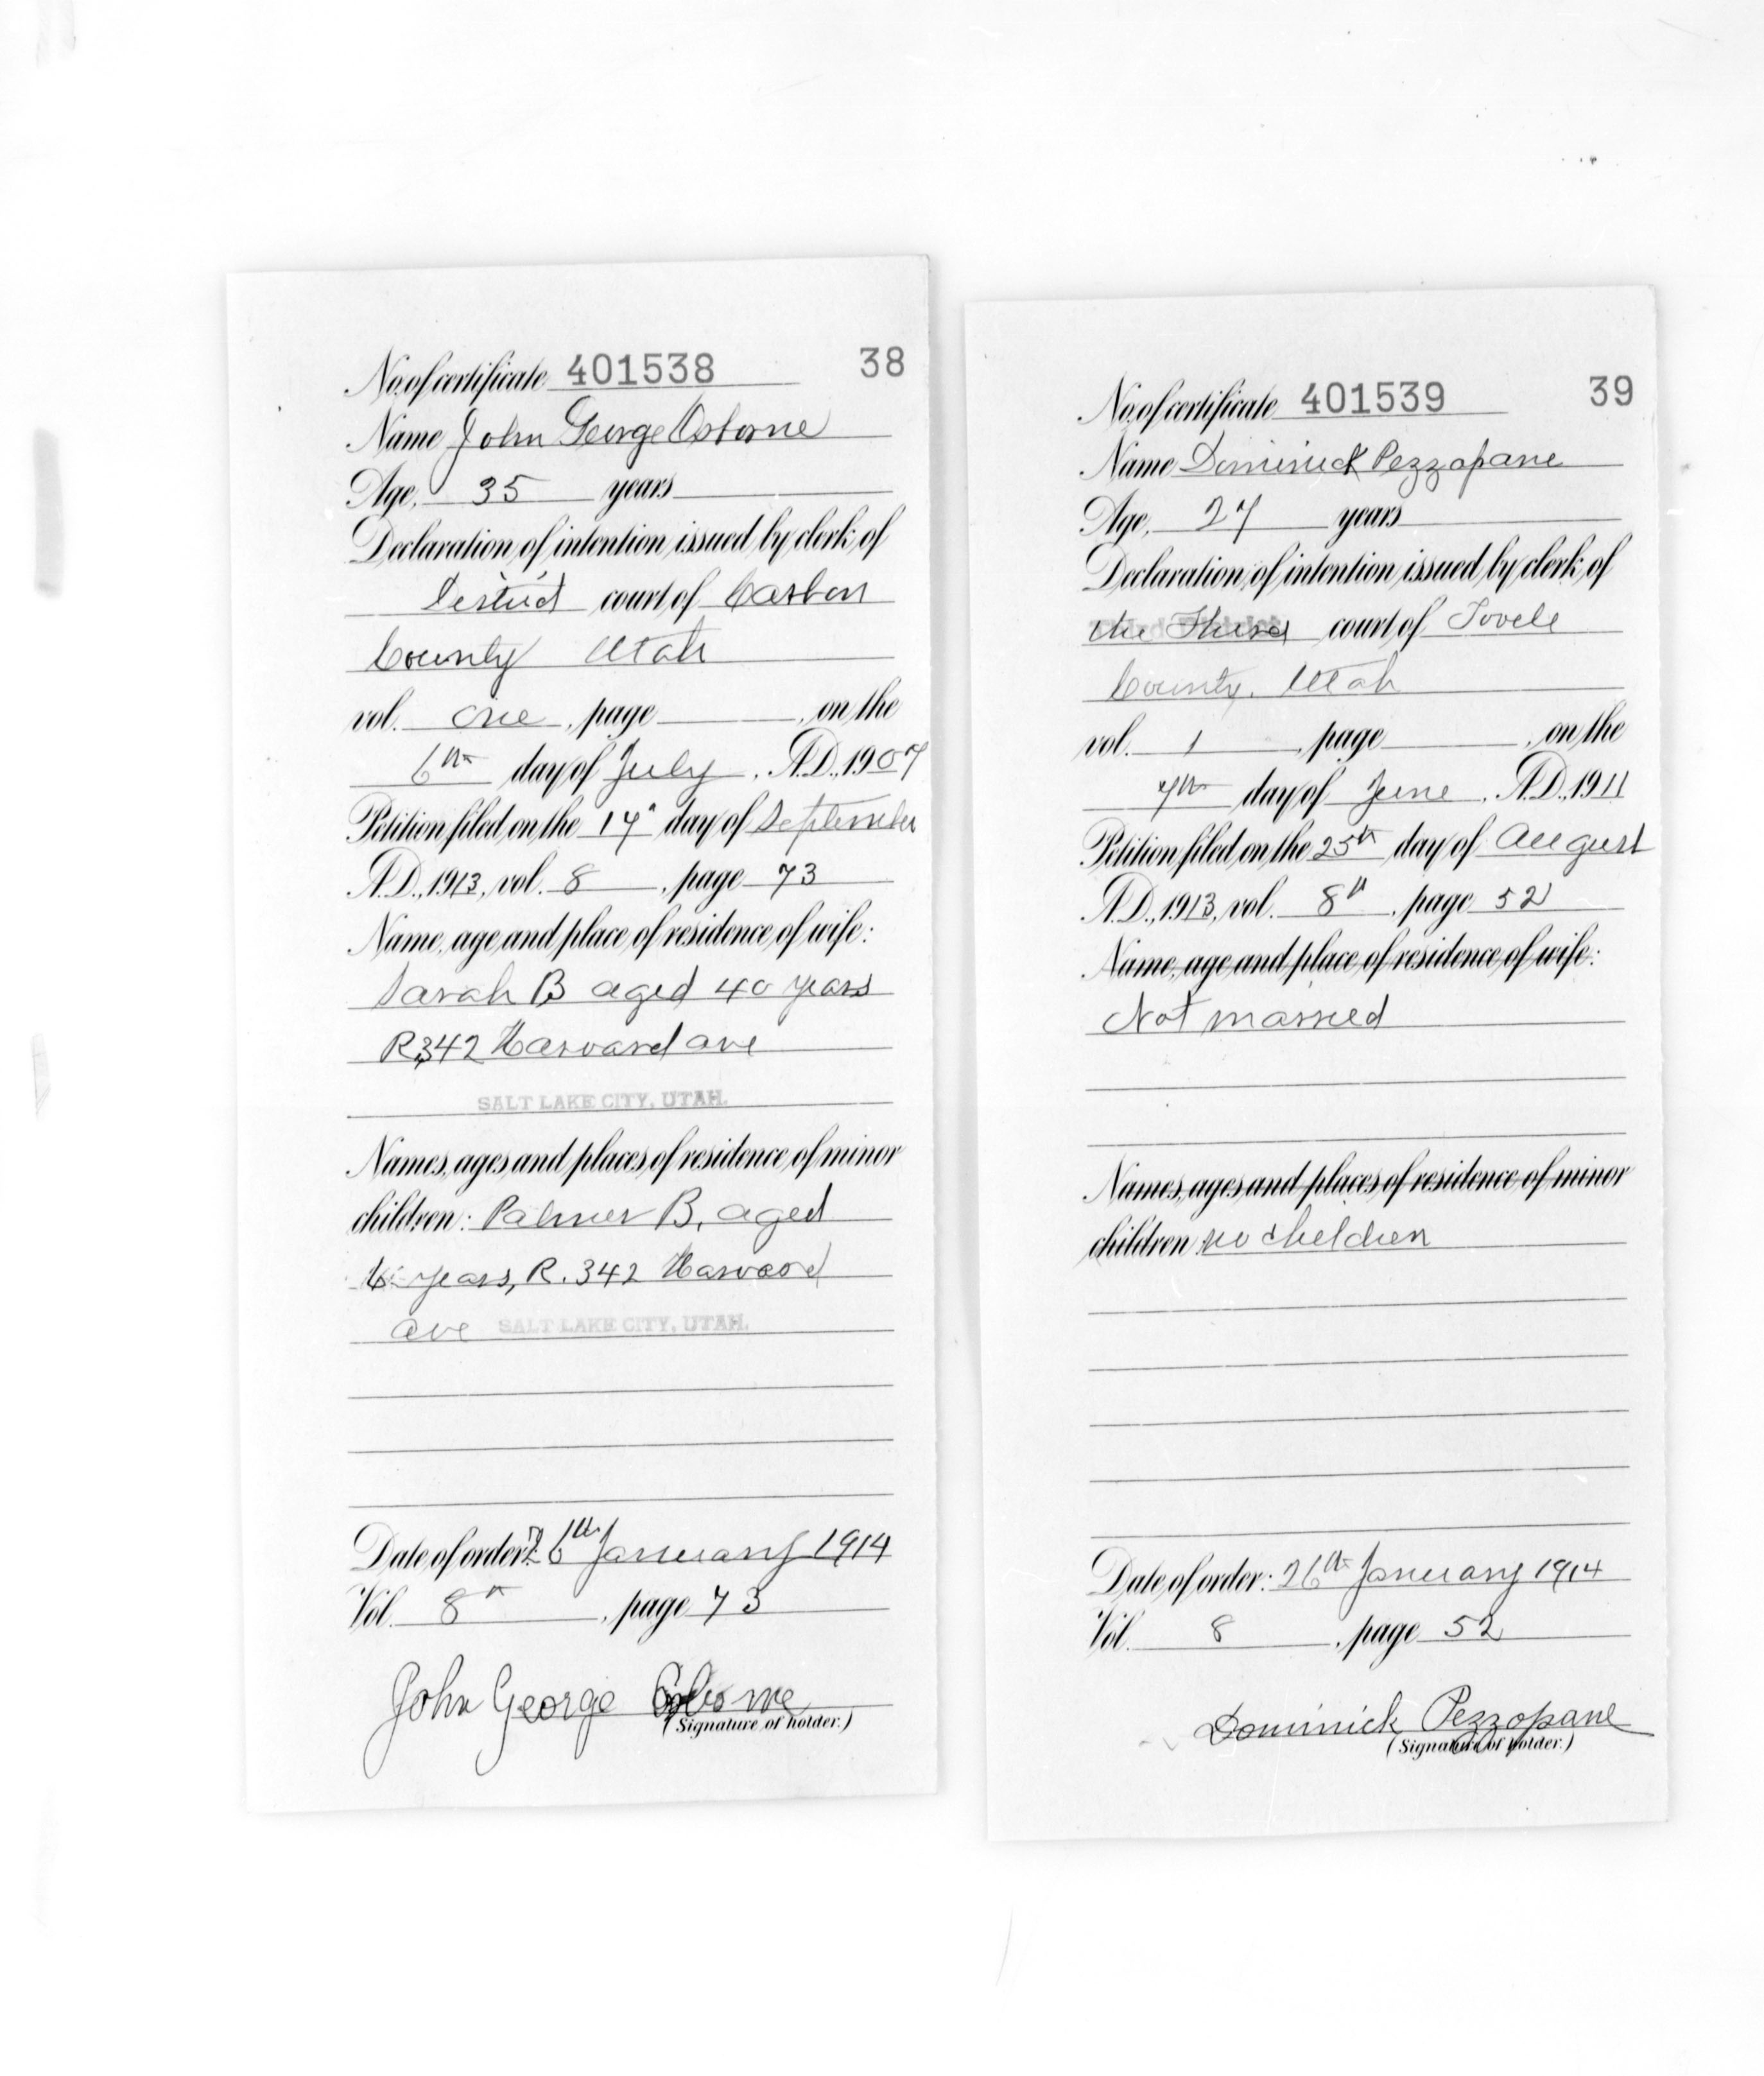 No. of certificate 401538 38
Name John George Osborne
Age, 35 years
Declaration of intention issued by clerk of
District court of Carbon
County Utah
vol. one, page , on the
6th day of July, A.D., 1907
Petition filed on the day of September
A.D., 1913, vol. 8, page 73
Name, age and place of residence of wife:
Sarah B aged 40 years
R 342 Harvard ave
SALT LAKE CITY, UTAH.
Names, ages and places of residence of minor
children: Palmer B, aged
years, R. 342 Harvard
ave SALT LAKE CITY, UTAH.
Date of order: 26th January 1914
Vol. 8", page 73
John George Osborne
(Signature of holder.)
No. of certificate 401539 39
Name Dominick Pezzopane
Age, 27 years
Declaration of intention issued by clerk of
the Third court of Tooele
County, Utah
vol. 1, page , on the
7th day of June, A.D., 1911
Petition filed on the 25th day of August
A.D., 1913, vol. 8", page 52
Name, age and place of residence of wife:
Not married
Names, ages and places of residence of minor
children no children
Date of order: 26th January 1914
Vol. 8, page 52
Dominick Pezzopane
(Signature of holder.)